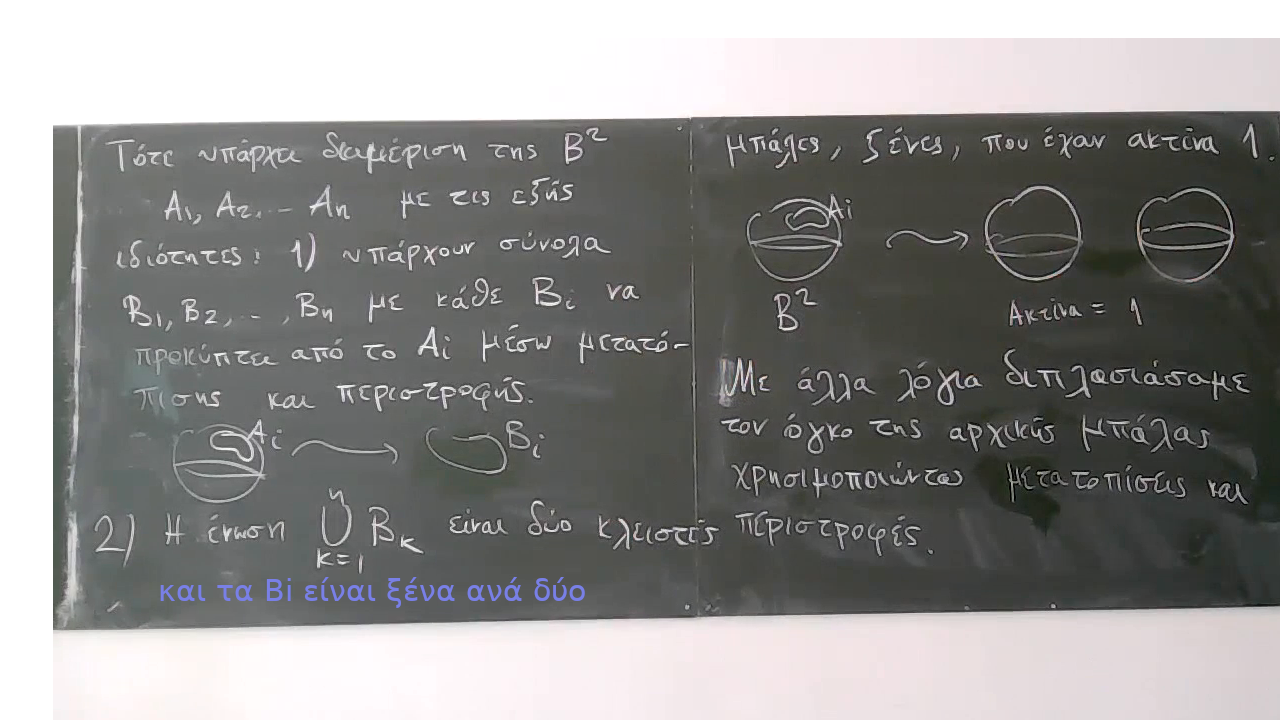 Τότε υπάρχει διαμέριση της B²
A₁, A₂, .. Aₙ με τις εξής
ιδιότητες: 1) υπάρχουν σύνολα
B₁, B₂, .. , Bₙ με κάθε Bᵢ να
προκύπτει από το Aᵢ μέσω μετατό-
πισης και περιστροφής.
Aᵢ Bᵢ
2) Η ένωση ⋃ₖ₌₁ⁿ Bₖ είναι δύο κλειστές
και τα Bi είναι ξένα ανά δύο
μπάλες, ξένες, που έχουν ακτίνα 1.
Aᵢ
B² Ακτίνα = 1
Με άλλα λόγια διπλασιάσαμε
τον όγκο της αρχικής μπάλας
χρησιμοποιώντας μετατοπίσεις και
περιστροφές.